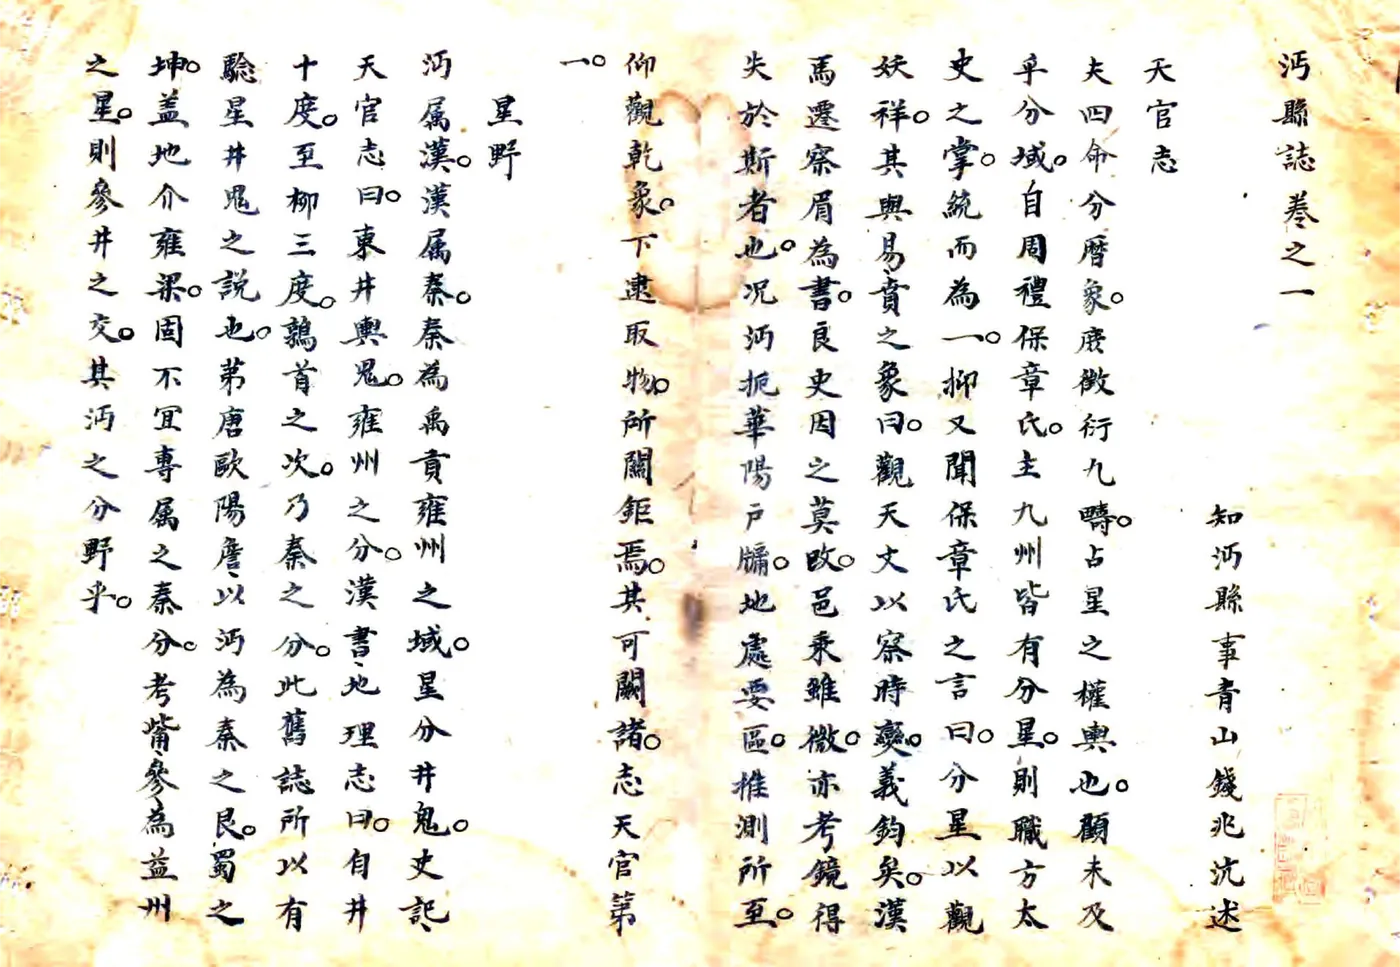 沔縣誌卷之一
知沔縣事青山錢兆沆述
天官志
夫四命分曆象庶徵衍九疇。占星之權輿也。顧未及
乎分域。自周禮保章氏。主九州皆有分星。則職方太
史之掌。統而為一。抑又聞保章氏之言曰。分星以觀
妖祥。其與易賁之象曰。觀天文以察時變。義鈞矣。漢
馬遷察眉為書。良史因之莫改。邑乘雖微。亦考鏡得
失於斯者也。况沔扼華陽戶牖。地處要區。推測所至。
仰觀乾象。下逮取物。所關鉅焉。其可闕諸。志天官第
一。
星野
沔属漢。漢属秦。秦為禹貢雍州之域。星分井鬼。史記、
天官志曰。東井輿鬼。雍州之分。漢書、地理志曰。自井
十度。至柳三度。鶉首之次。乃秦之分。此舊誌所以有
驗星井鬼之説也。苐唐歐陽詹、以沔為秦之艮。蜀之
坤。盖地介雍梁。固不冝專属之秦分。考觜、參、為益州
之星。則參井之交。其沔之分野乎。